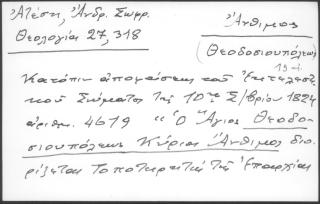 Ἀτέση, Ἀνδρ. Σωφρ.
Θεολογία 27, 318
Ἄνθιμος
(Θεοδοσιουπόλεως)
19 αἰ.
Κατόπιν ἀποφάσεως τοῦ Ἐκτελεστι-
κοῦ Σώματος τῆς 10ης Σ/βρίου 1824
ἀριθμ. 4619 "Ὁ Ἅγιος Θεοδο-
σιουπόλεως Κύριος Ἄνθιμος διο-
ρίζεται Τοποτηρητὴς τῆς Ἐπαρχίας